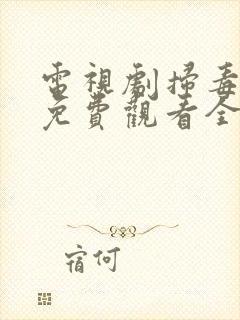 電視劇掃毒
免費觀看全
宿何